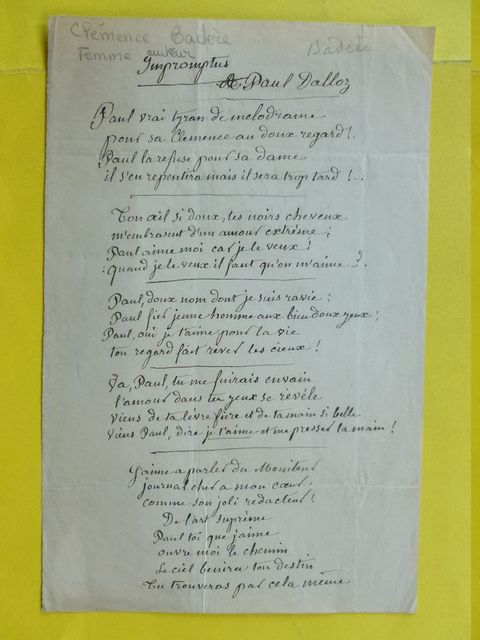 Clémence Badère
Femme auteur
Badère
Impromptus
A Paul Dalloz
Paul vrai tyran de melodrame
pour sa Clemence au doux regard !.
Paul la refuse pour sa dame
il s'en repentira mais il sera trop tard ! ..
Ton œil si doux, tes noirs cheveux
m'embrasent d'un amour extrême ;
Paul aime moi car je le veux !
quand je le veux il faut qu'on m'aime ?.
Paul, doux nom dont je suis ravie :
Paul fier jeune homme aux bleu doux yeux ;
Paul, oui je t'aime pour la vie
ton regard fait rever les cieux !
Va, Paul, tu me fuirais envain
l'amour dans tes yeux se revèle
viens de ta lèvre fière et de ta main si belle
viens Paul, dire je t'aime et me presser la main !
J'aime a parler du Moniteur
journal cher a mon cœur,
comme son joli redacteur !
De l'art suprème
Paul toi que j'aime
ouvre moi le chemin
Le ciel benira ton destin
Tu trouveras par cela même